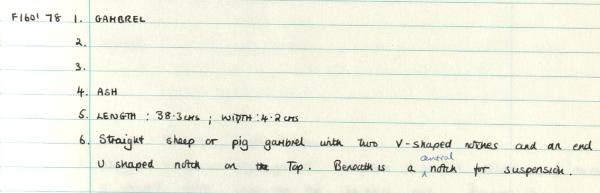 F1601 78 1. GAMBREL
2.
3.
4. ASH
5. LENGTH : 38.3 cms ; WIDTH : 4.2 cms
6. Straight sheep or pig gambrel with two V-shaped notches and an end
U shaped notch on the Top. Beneath is a central notch for suspension.